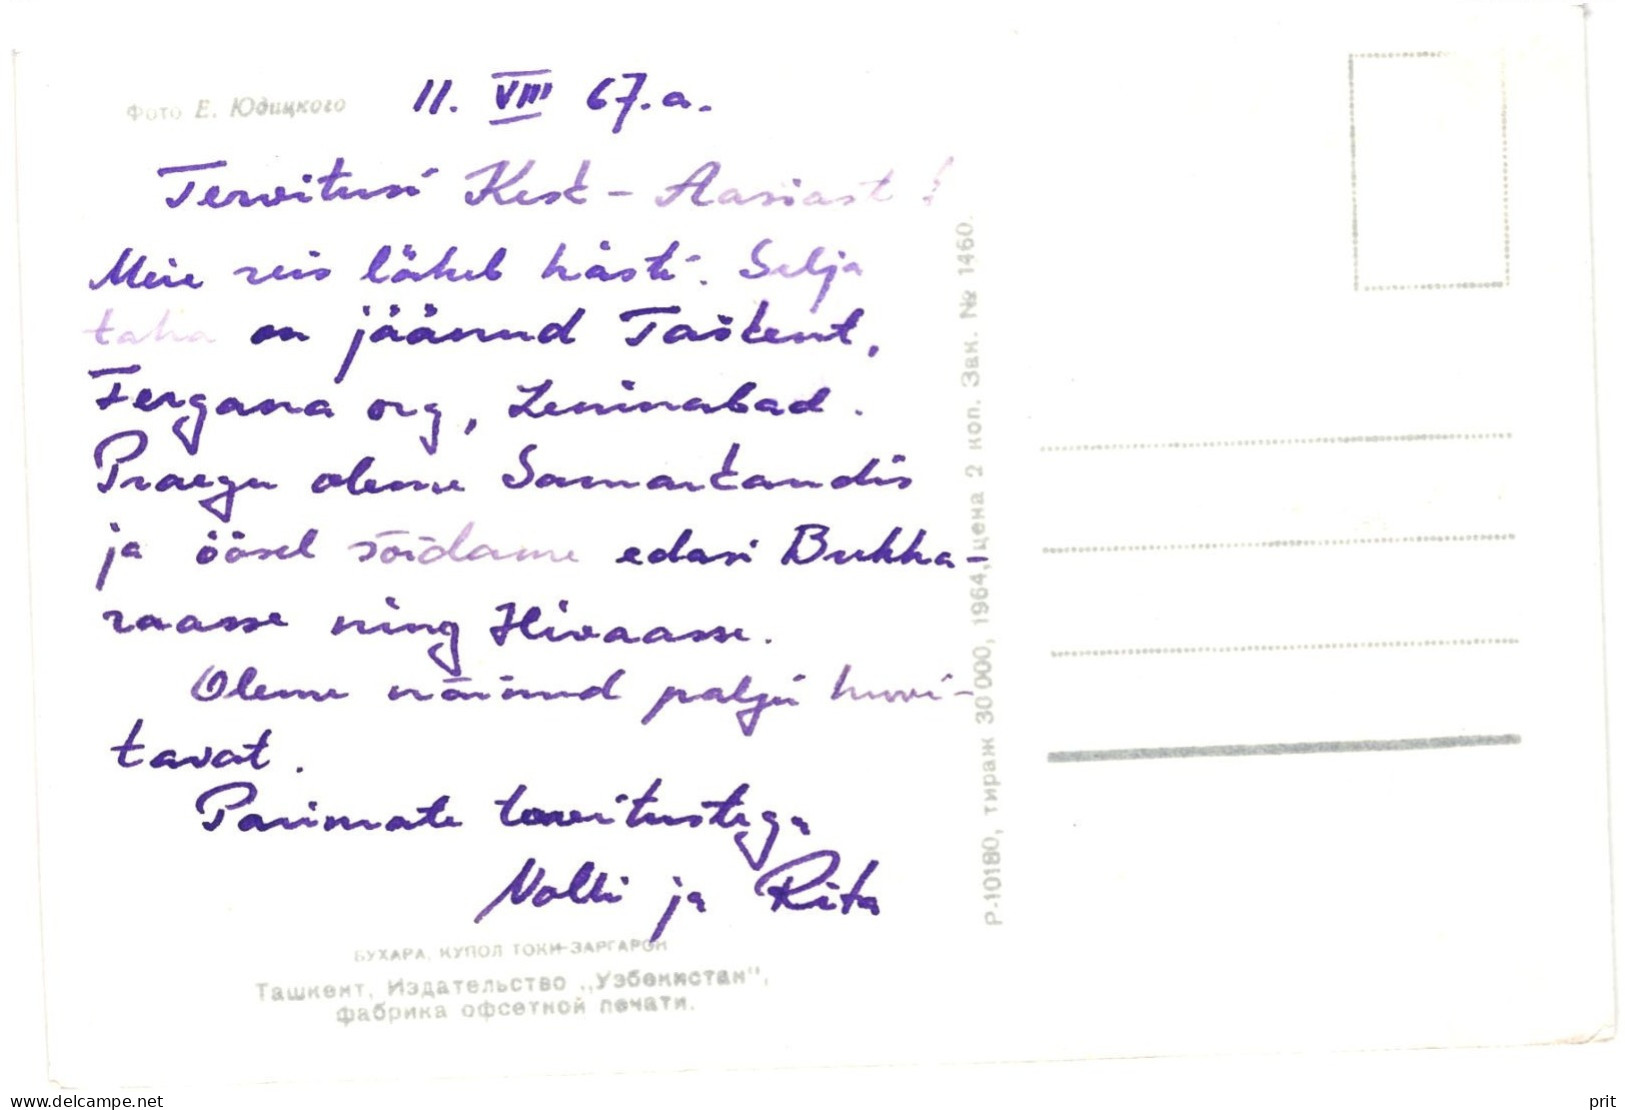 Фото Е. Юдицкого
11. VIII 67. a.
Tervitusi Kesk-Aasiast!
Meie reis läheb hästi. Selja
taha on jäänud Taškent,
Fergana org, Leninabad.
Praegu oleme Samarkandis
ja öösel sõidame edasi Buhha-
raasse ning Hivaasse.
Oleme näinud palju huvi-
tavat.
Parimate tervitustega
Volli ja Rita
БУХАРА. КУПОЛ ТОКИ-ЗАРГАРОН
Ташкент, Издательство „Узбекистан",
фабрика офсетной печати.
Р-10180, тираж 30 000, 1964, цена 2 коп. Зак. № 1460.
www.delcampe.net
prit